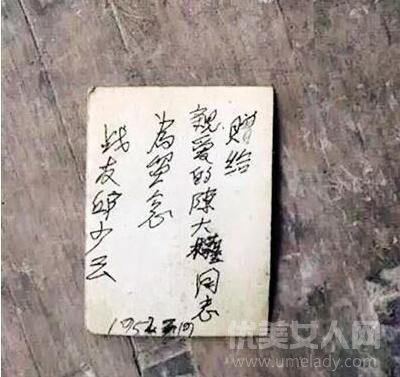 赠给
亲爱的陈大权同志
为留念
战友邱少云
1952.五.1日
优美女人网
www.umelady.com